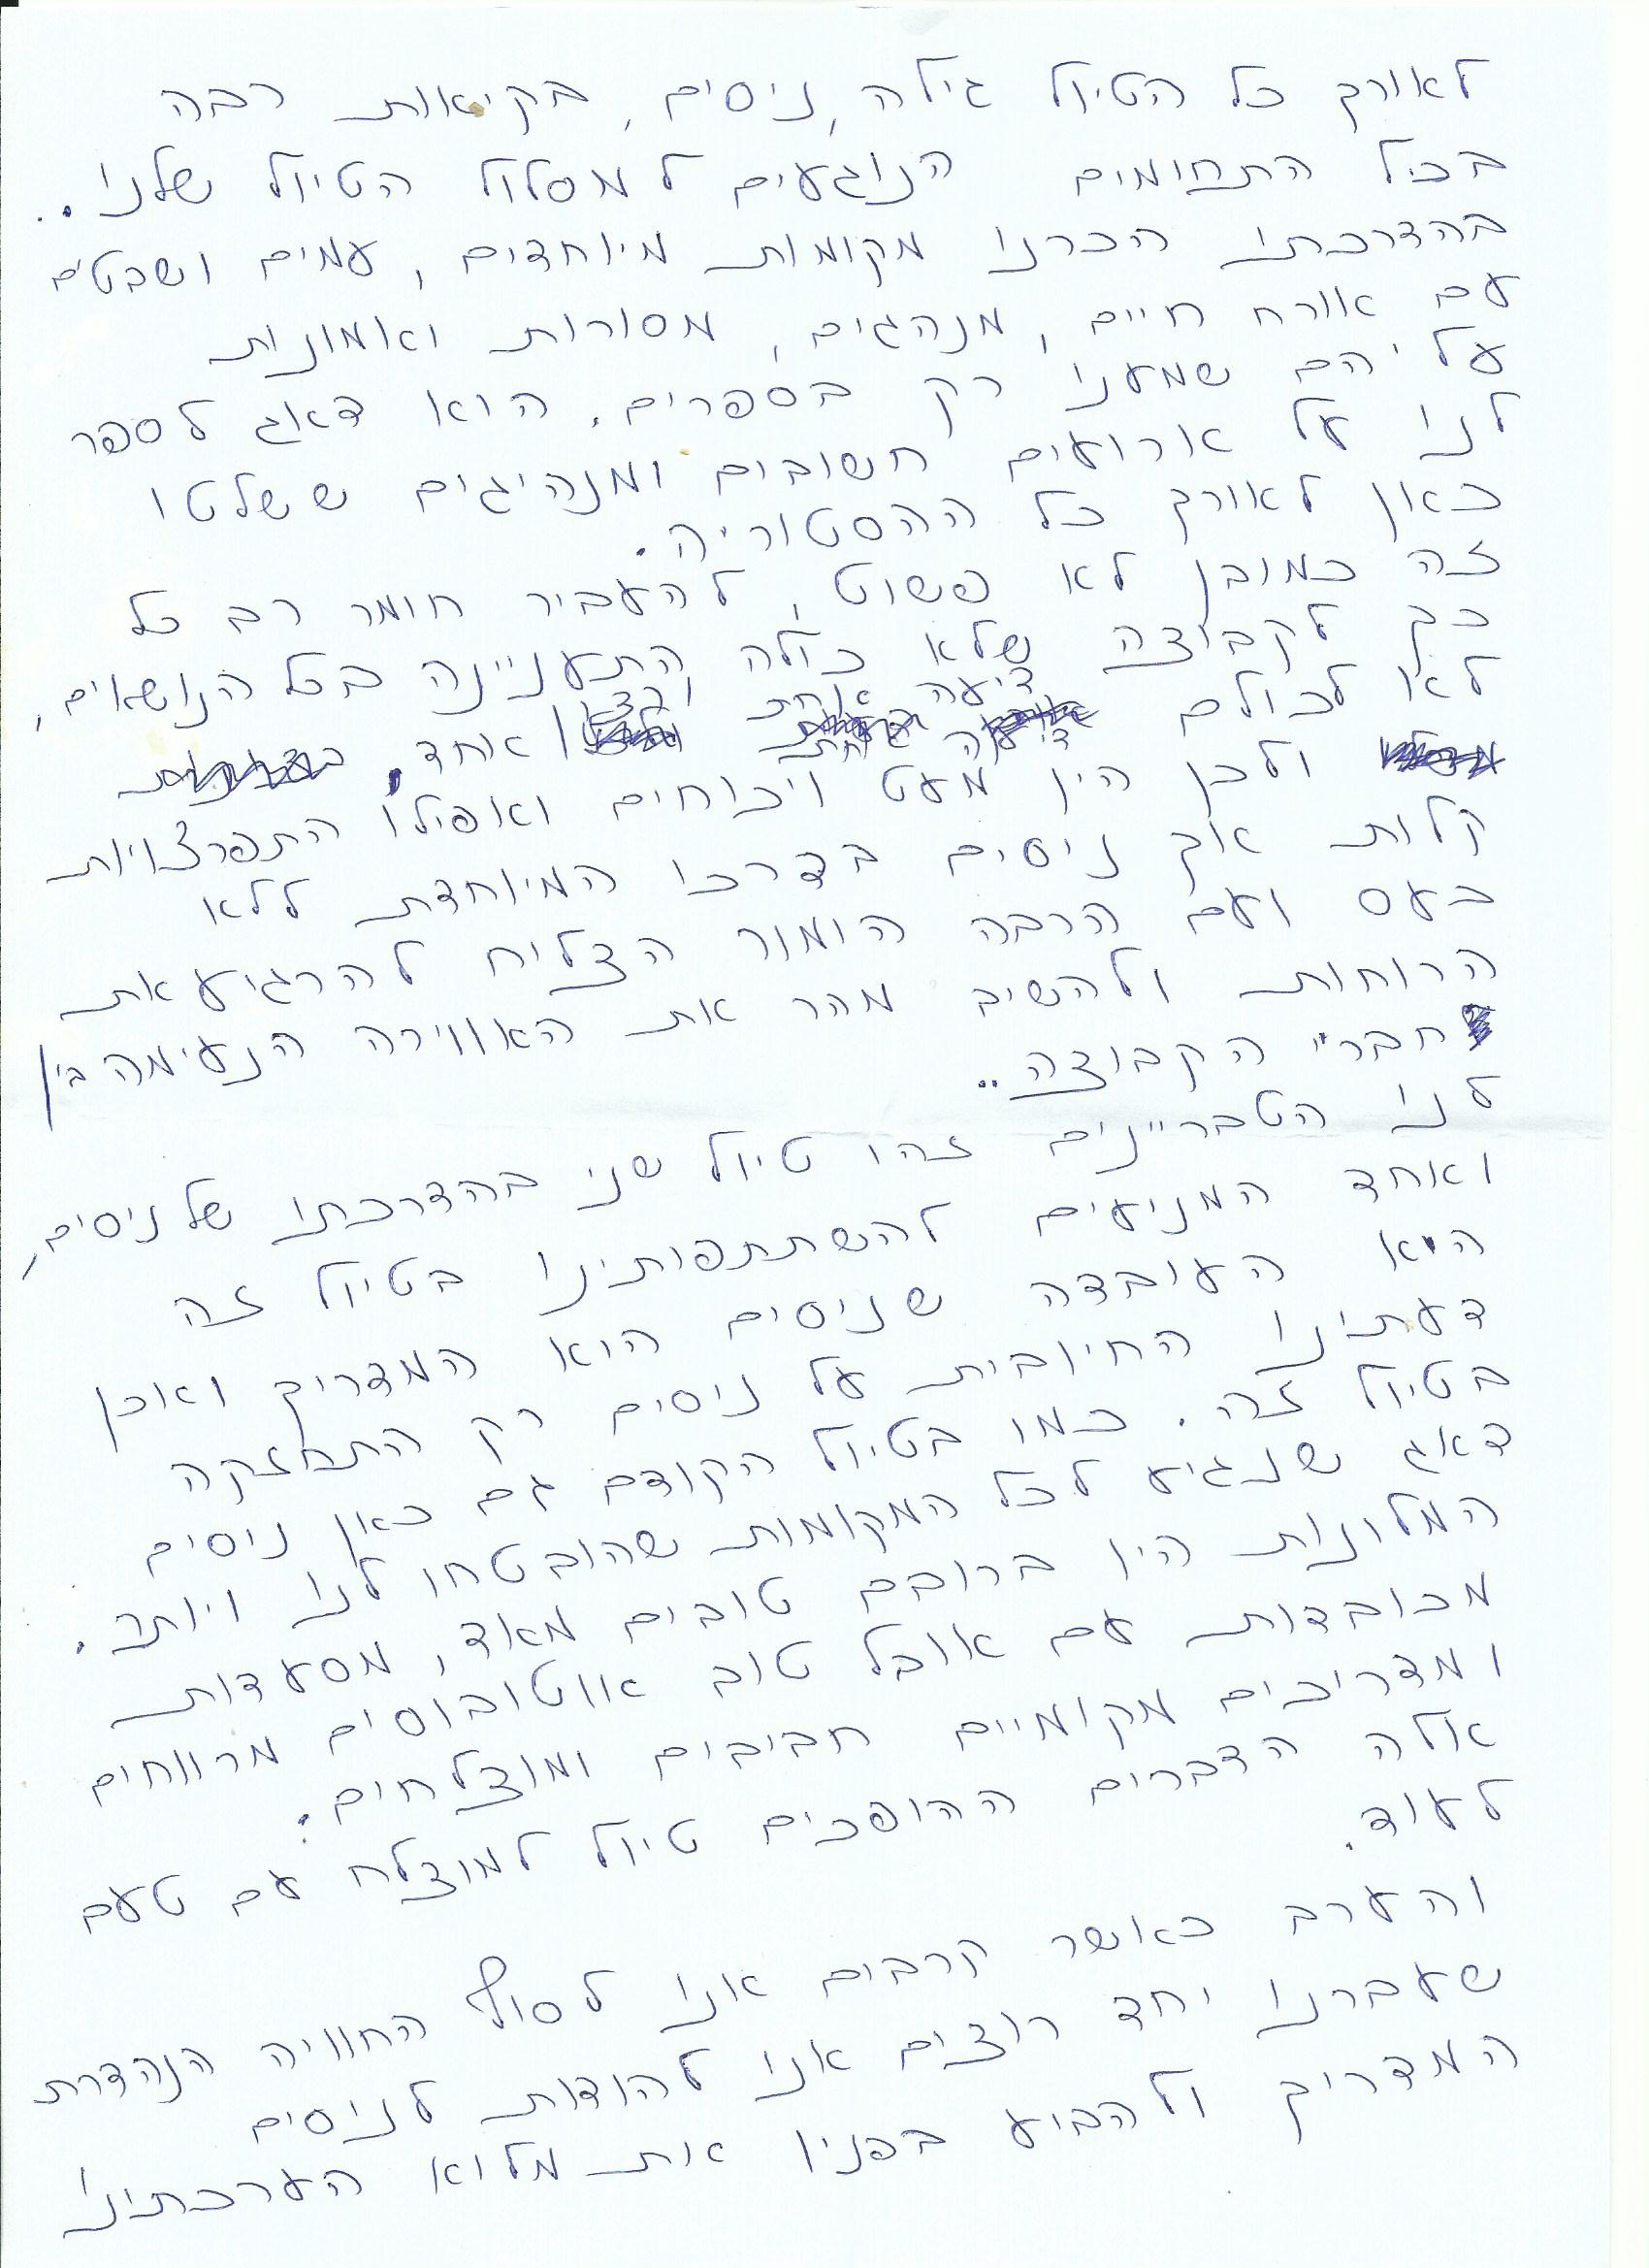 לאורך כל הטיול גילה, ניסים, בקיאות רבה
בכול התחומים הנוגעים למסלול הטיול שלנו..
בהדרכתו הכרנו מקומות מיוחדים, עמים ושבטים
עם אורח חיים, מנהגים, מסורות ואמונות
עליהם שמענו רק בספרים. הוא דאג לספר
לנו על ארועים חשובים ומנהיגים ששלטו
כאן לאורך כל ההסטוריה.
זה כמובן לא פשוט, להעביר חומר רב כל
כך לקבוצה שלא כולה התעניינה בכל הנושאים,
לא לכולם דיעה אחת ורצון אחד,
ולכן היו מעט ויכוחים ואפילו התפרצויות
קלות אך ניסים בדרכו המיוחדת ללא
כעס ועם הרבה הומור הצליח להרגיע את
הרוחות ולהשיב מהר את האווירה הנעימה בין
חברי הקבוצה..
לנו הטבריינים זהו טיול שני בהדרכתו של ניסים,
ואחד המניעים להשתתפותינו בטיול זה
היא העובדה שניסים הוא המדריך ואכן
דעתינו החיובית על ניסים רק התחזקה
בטיול זה. כמו בטיול הקודם גם כאן ניסים
דאג שנגיע לכל המקומות שהובטחו לנו ויותר.
המלונות היו ברובם טובים מאוד, מסעדות
מכובדות עם אוכל טוב אווטובוסים מרווחים
ומדריכים מקומיים חביבים ומוצלחים:
אלה הדברים ההופכים טיול למוצלח עם טעם
לעוד.
והערב כאשר קרבים אנו לסוף החוויה הנהדרת
שעברנו יחד רוצים אנו להודות לניסים
המדריך ולהביע בפניו את מלוא הערכתינו